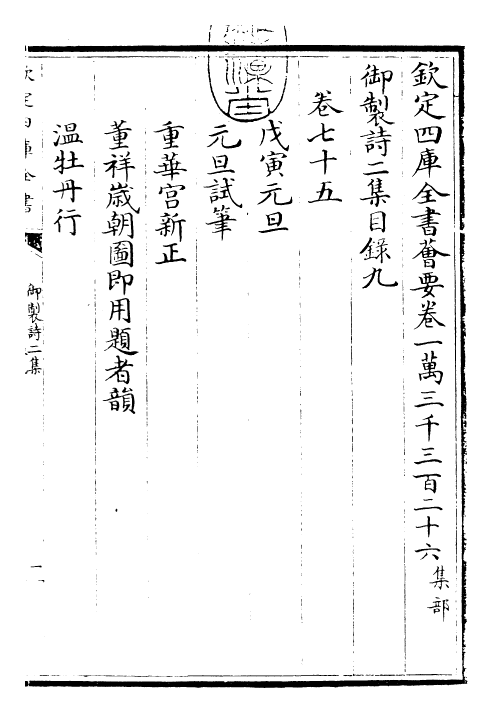 欽定四庫全書薈要卷一萬三千三百二十六集部
御製詩二集目錄九
卷七十五
戊寅元旦
元旦試筆
重華宮新正
董祥歲朝圖即用題者韻
溫牡丹行
欽定四庫全書
御製詩二集
一